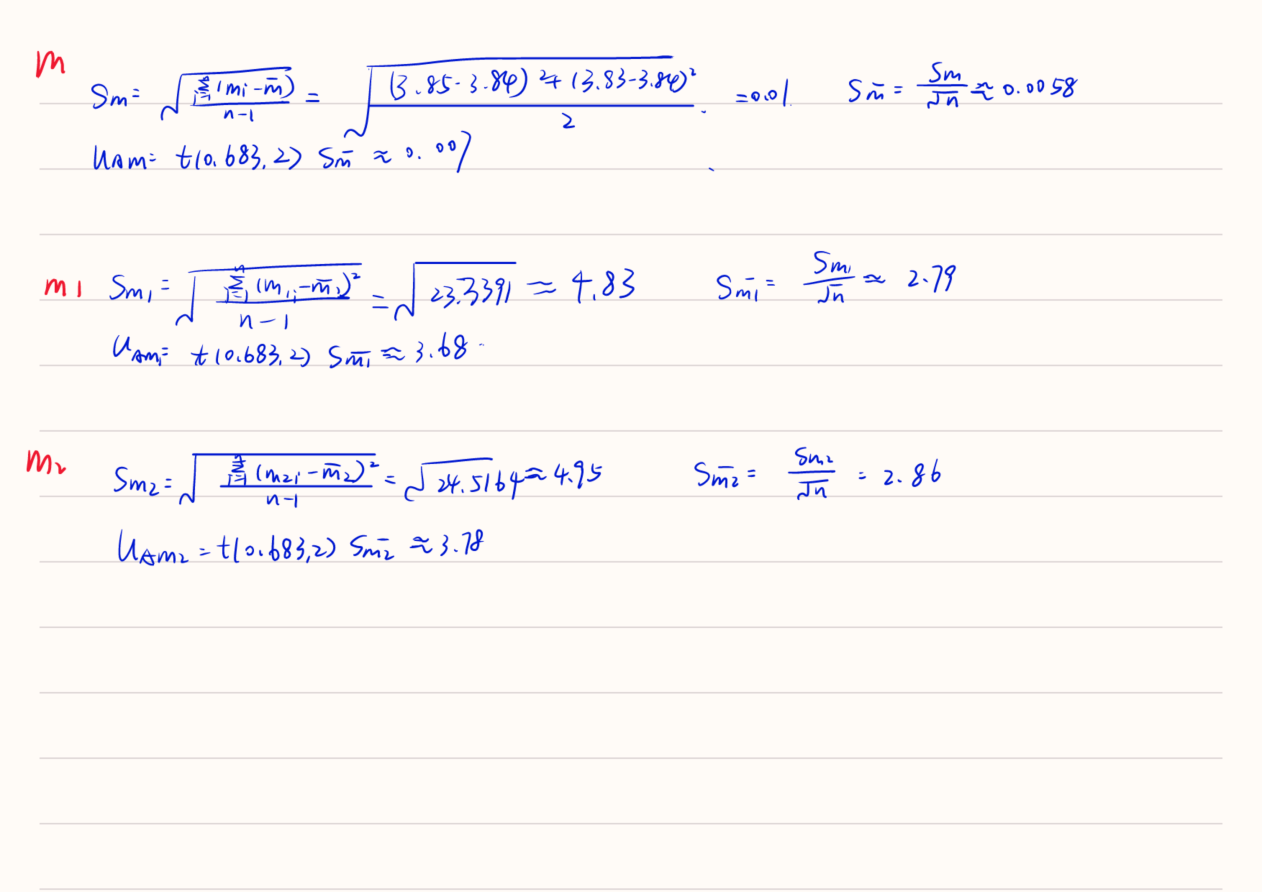 m
Sm = √(Σ(mi - m̄)/(n-1)) = √(((3.85-3.84)²+(3.83-3.84)²)/2) = 0.01 Sm̄ = Sm/√n ≈ 0.0058
UAm = t(0.683,2) Sm̄ ≈ 0.007
m1 Sm₁ = √(Σ(m₁ᵢ - m̄₁)²/(n-1)) = √23.3391 ≈ 4.83 Sm̄₁ = Sm₁/√n ≈ 2.79
UAm₁ = t(0.683,2) Sm̄₁ ≈ 3.68
m₂ Sm₂ = √(Σ(m₂ᵢ - m̄₂)²/(n-1)) = √24.5164 ≈ 4.95 Sm̄₂ = Sm₂/√n = 2.86
UAm₂ = t(0.683,2) Sm̄₂ ≈ 3.78